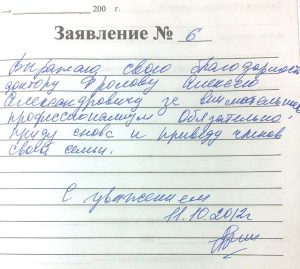 200 г.
Заявление № 6
Выражаю свою благодарность
доктору Фролову Алексею
Александровичу за внимательность,
профессионализм. Обязательно
приду снова и приведу членов
своей семьи.
С уважением
11.10.2012г